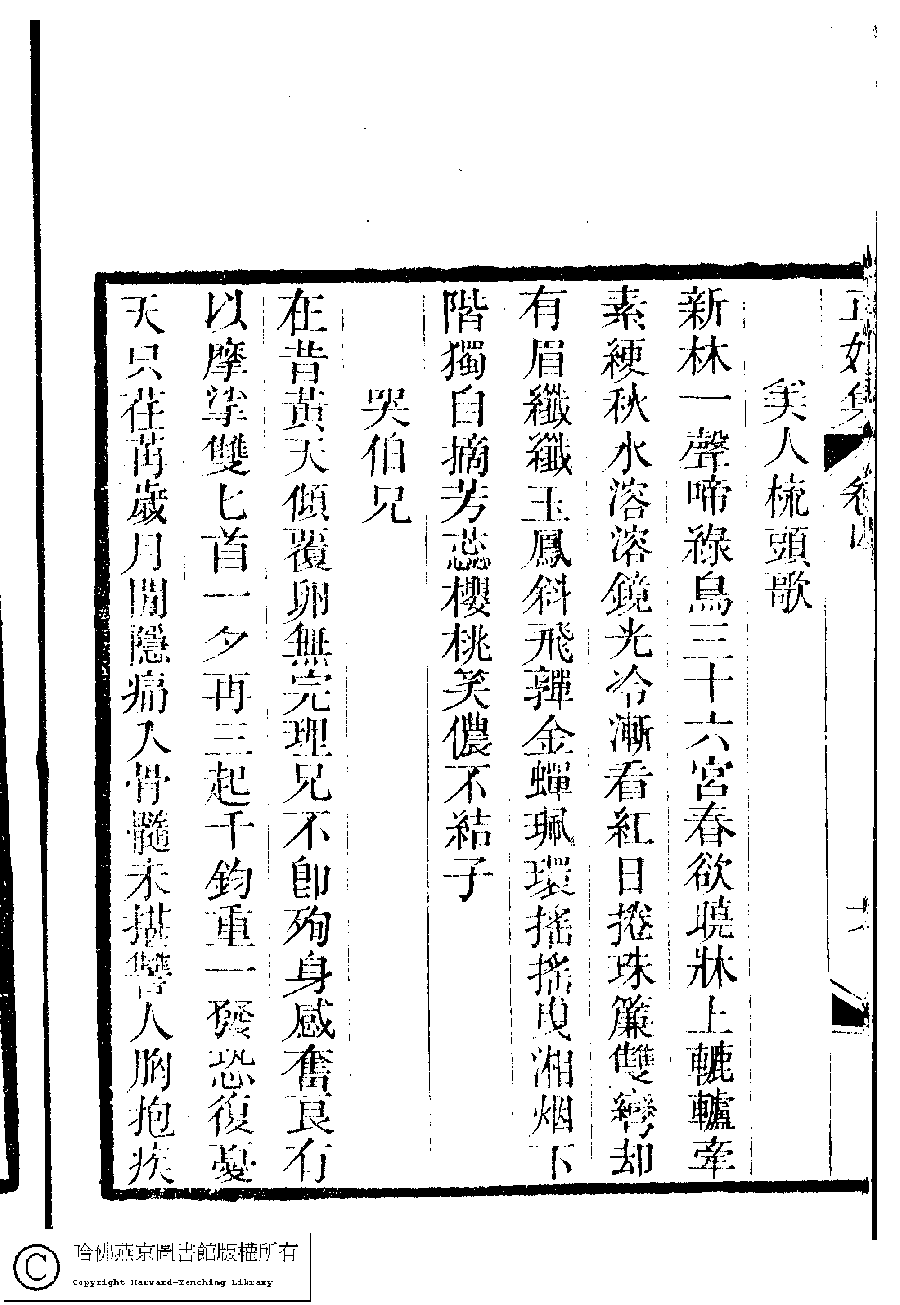 集 卷四
美人梳頭歌
新林一聲啼綠鳥三十六宮春欲曉牀上轆轤牽
素綆秋水溶溶鏡光冷漸看紅日捲珠簾雙彎却
有眉纖纖玉鳳斜飛嚲金蟬珮環搖搖曳湘烟下
階獨自摘芳蕊櫻桃笑儂不結子
哭伯兄
在昔黃天傾覆卵無完理兄不卽殉身感奮良有
以摩挲雙匕首一夕再三起千鈞重一發恐復憂
天只荏苒歲月間隱痛入骨髓未揕讐人胸抱疾
哈佛燕京圖書館版權所有
Copyright Harvard-Yenching Library